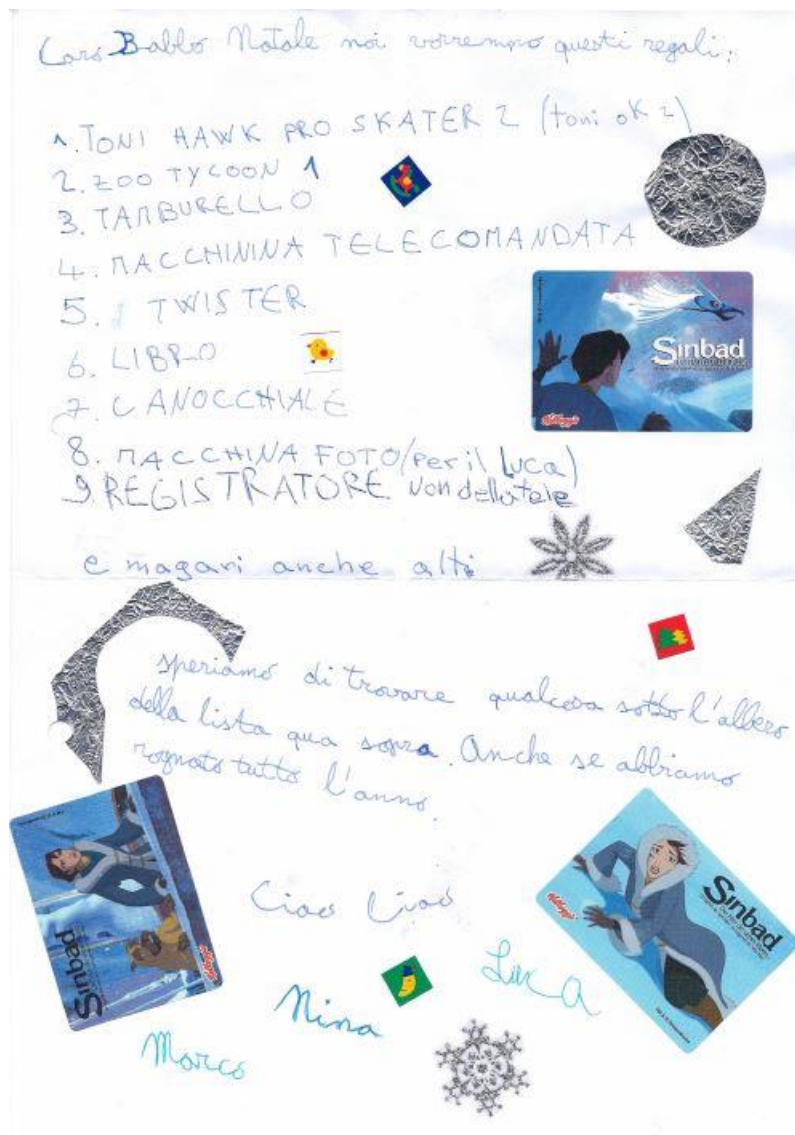 Caro Babbo Natale noi vorremmo questi regali:
1. TONI HAWK PRO SKATER 2 (toni ok 2)
2. ZOO TYCOON 1
3. TAMBURELLO
4. MACCHININA TELECOMANDATA
5. TWISTER
6. LIBRO
7. CANOCCHIALE
8. MACCHINA FOTO (per il Luca)
9. REGISTRATORE non della tele
e magari anche alti
Sinbad
Kellogg's
speriamo di trovare qualcosa sotto l'albero
della lista qua sopra. Anche se abbiamo
rognato tutto l'anno.
Ciao Ciao
Sinbad
Kellogg's
Sinbad
Kellogg's
Luca
Nina
Marco